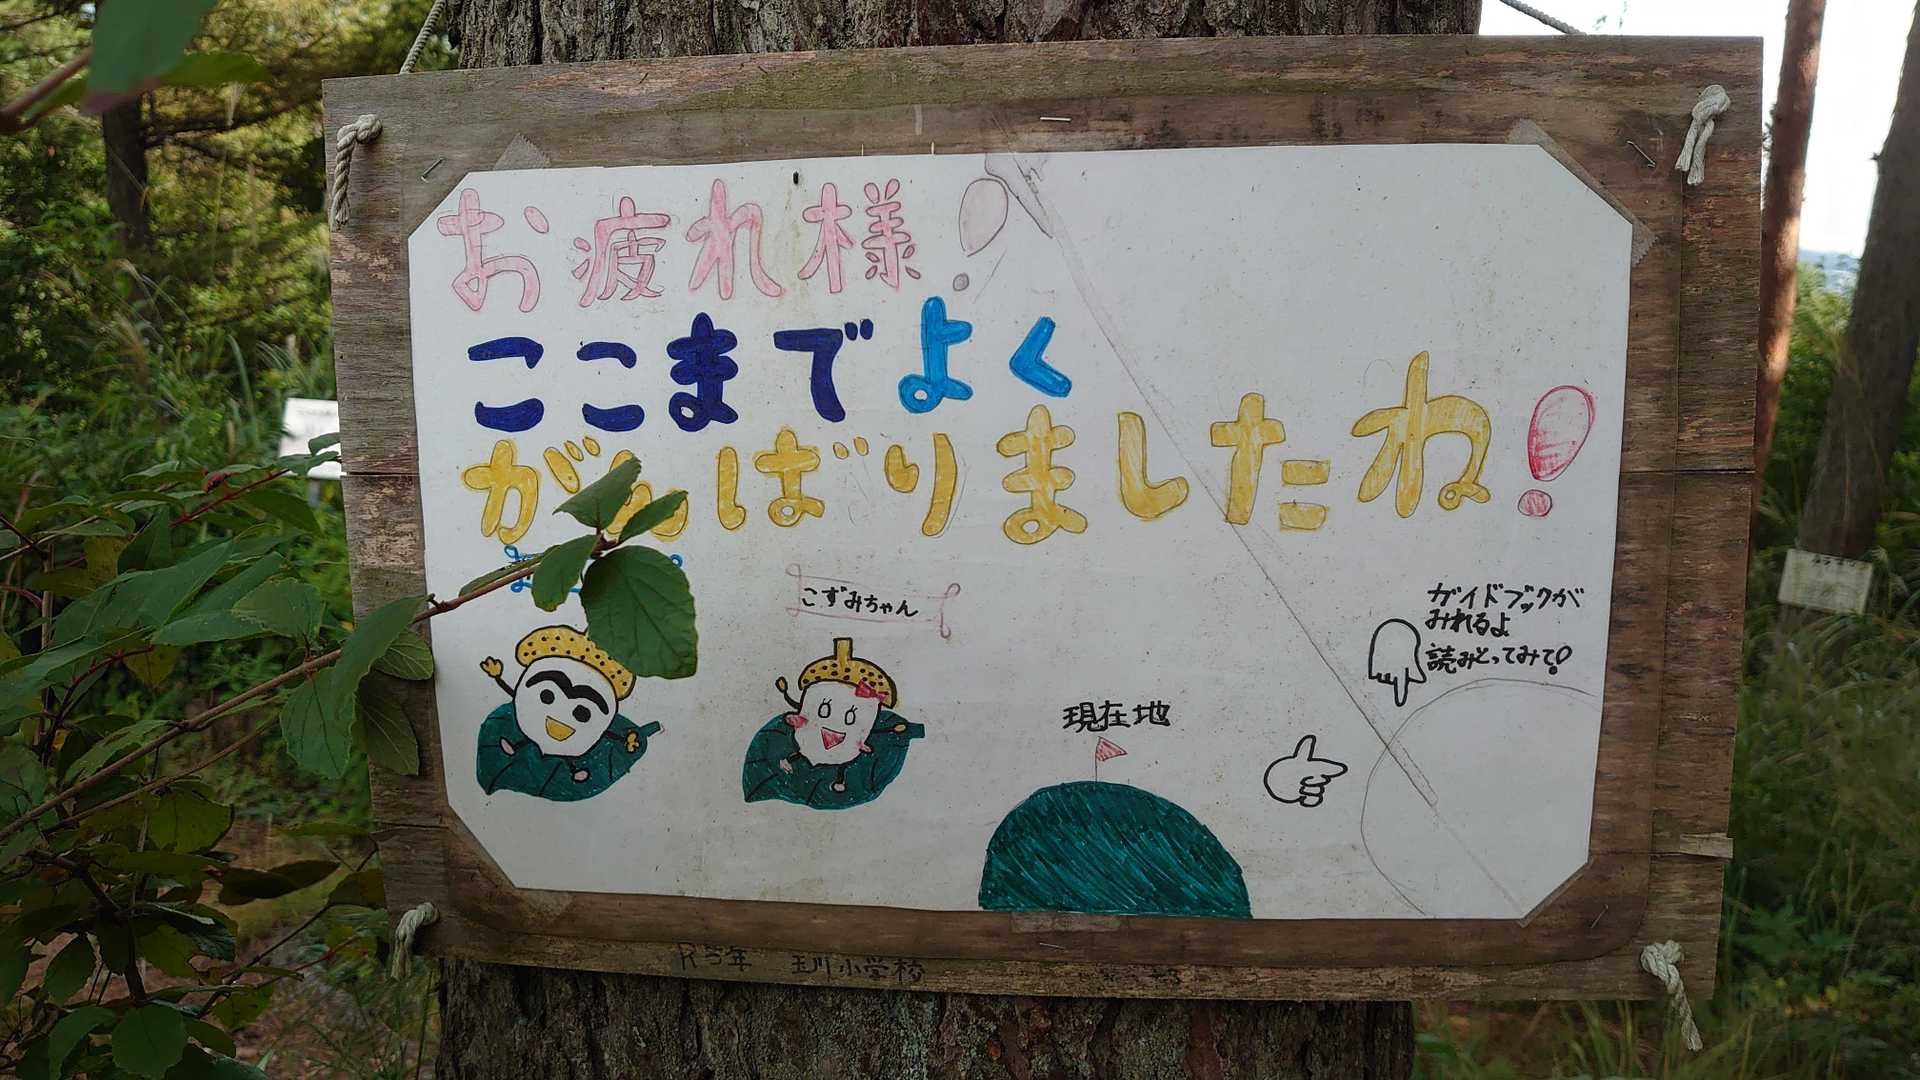 お疲れ様!
ここまでよく
がんばりましたね!
こずみちゃん
現在地
ガイドブックが
みれるよ
読みとってみて!
R5年 玉川小学校